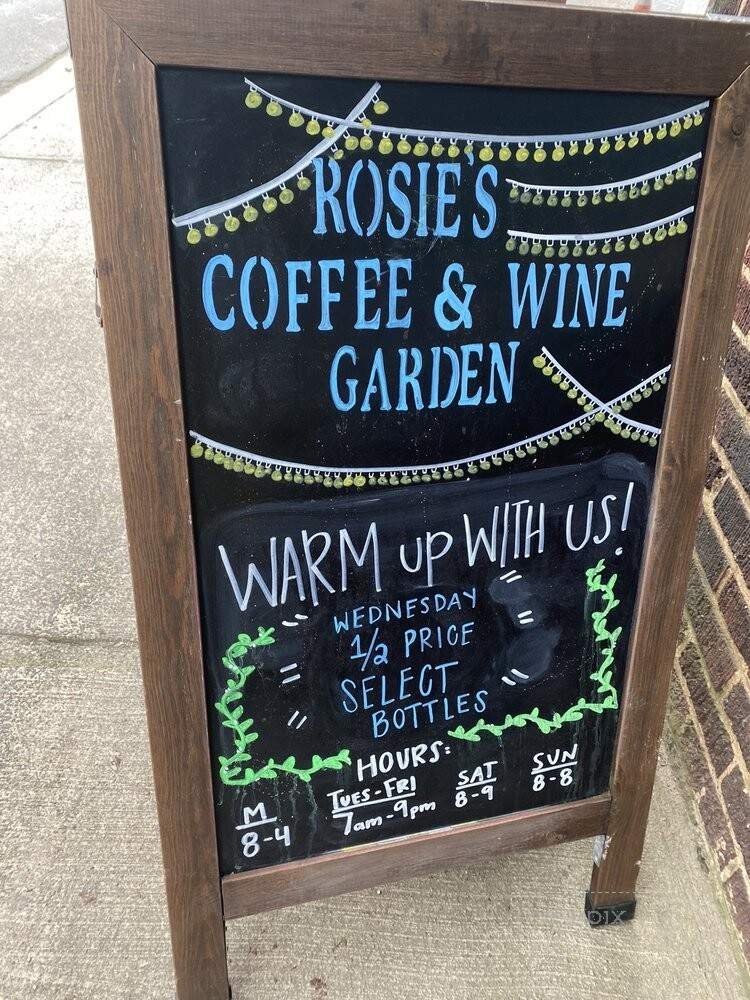 ROSIE'S
COFFEE & WINE
GARDEN
WARM up WITH US!
WEDNESDAY
1/2 PRICE
SELECT
BOTTLES
HOURS:
M
8-4
TUES-FRI
7am-9pm
SAT
8-9
SUN
8-8
pix